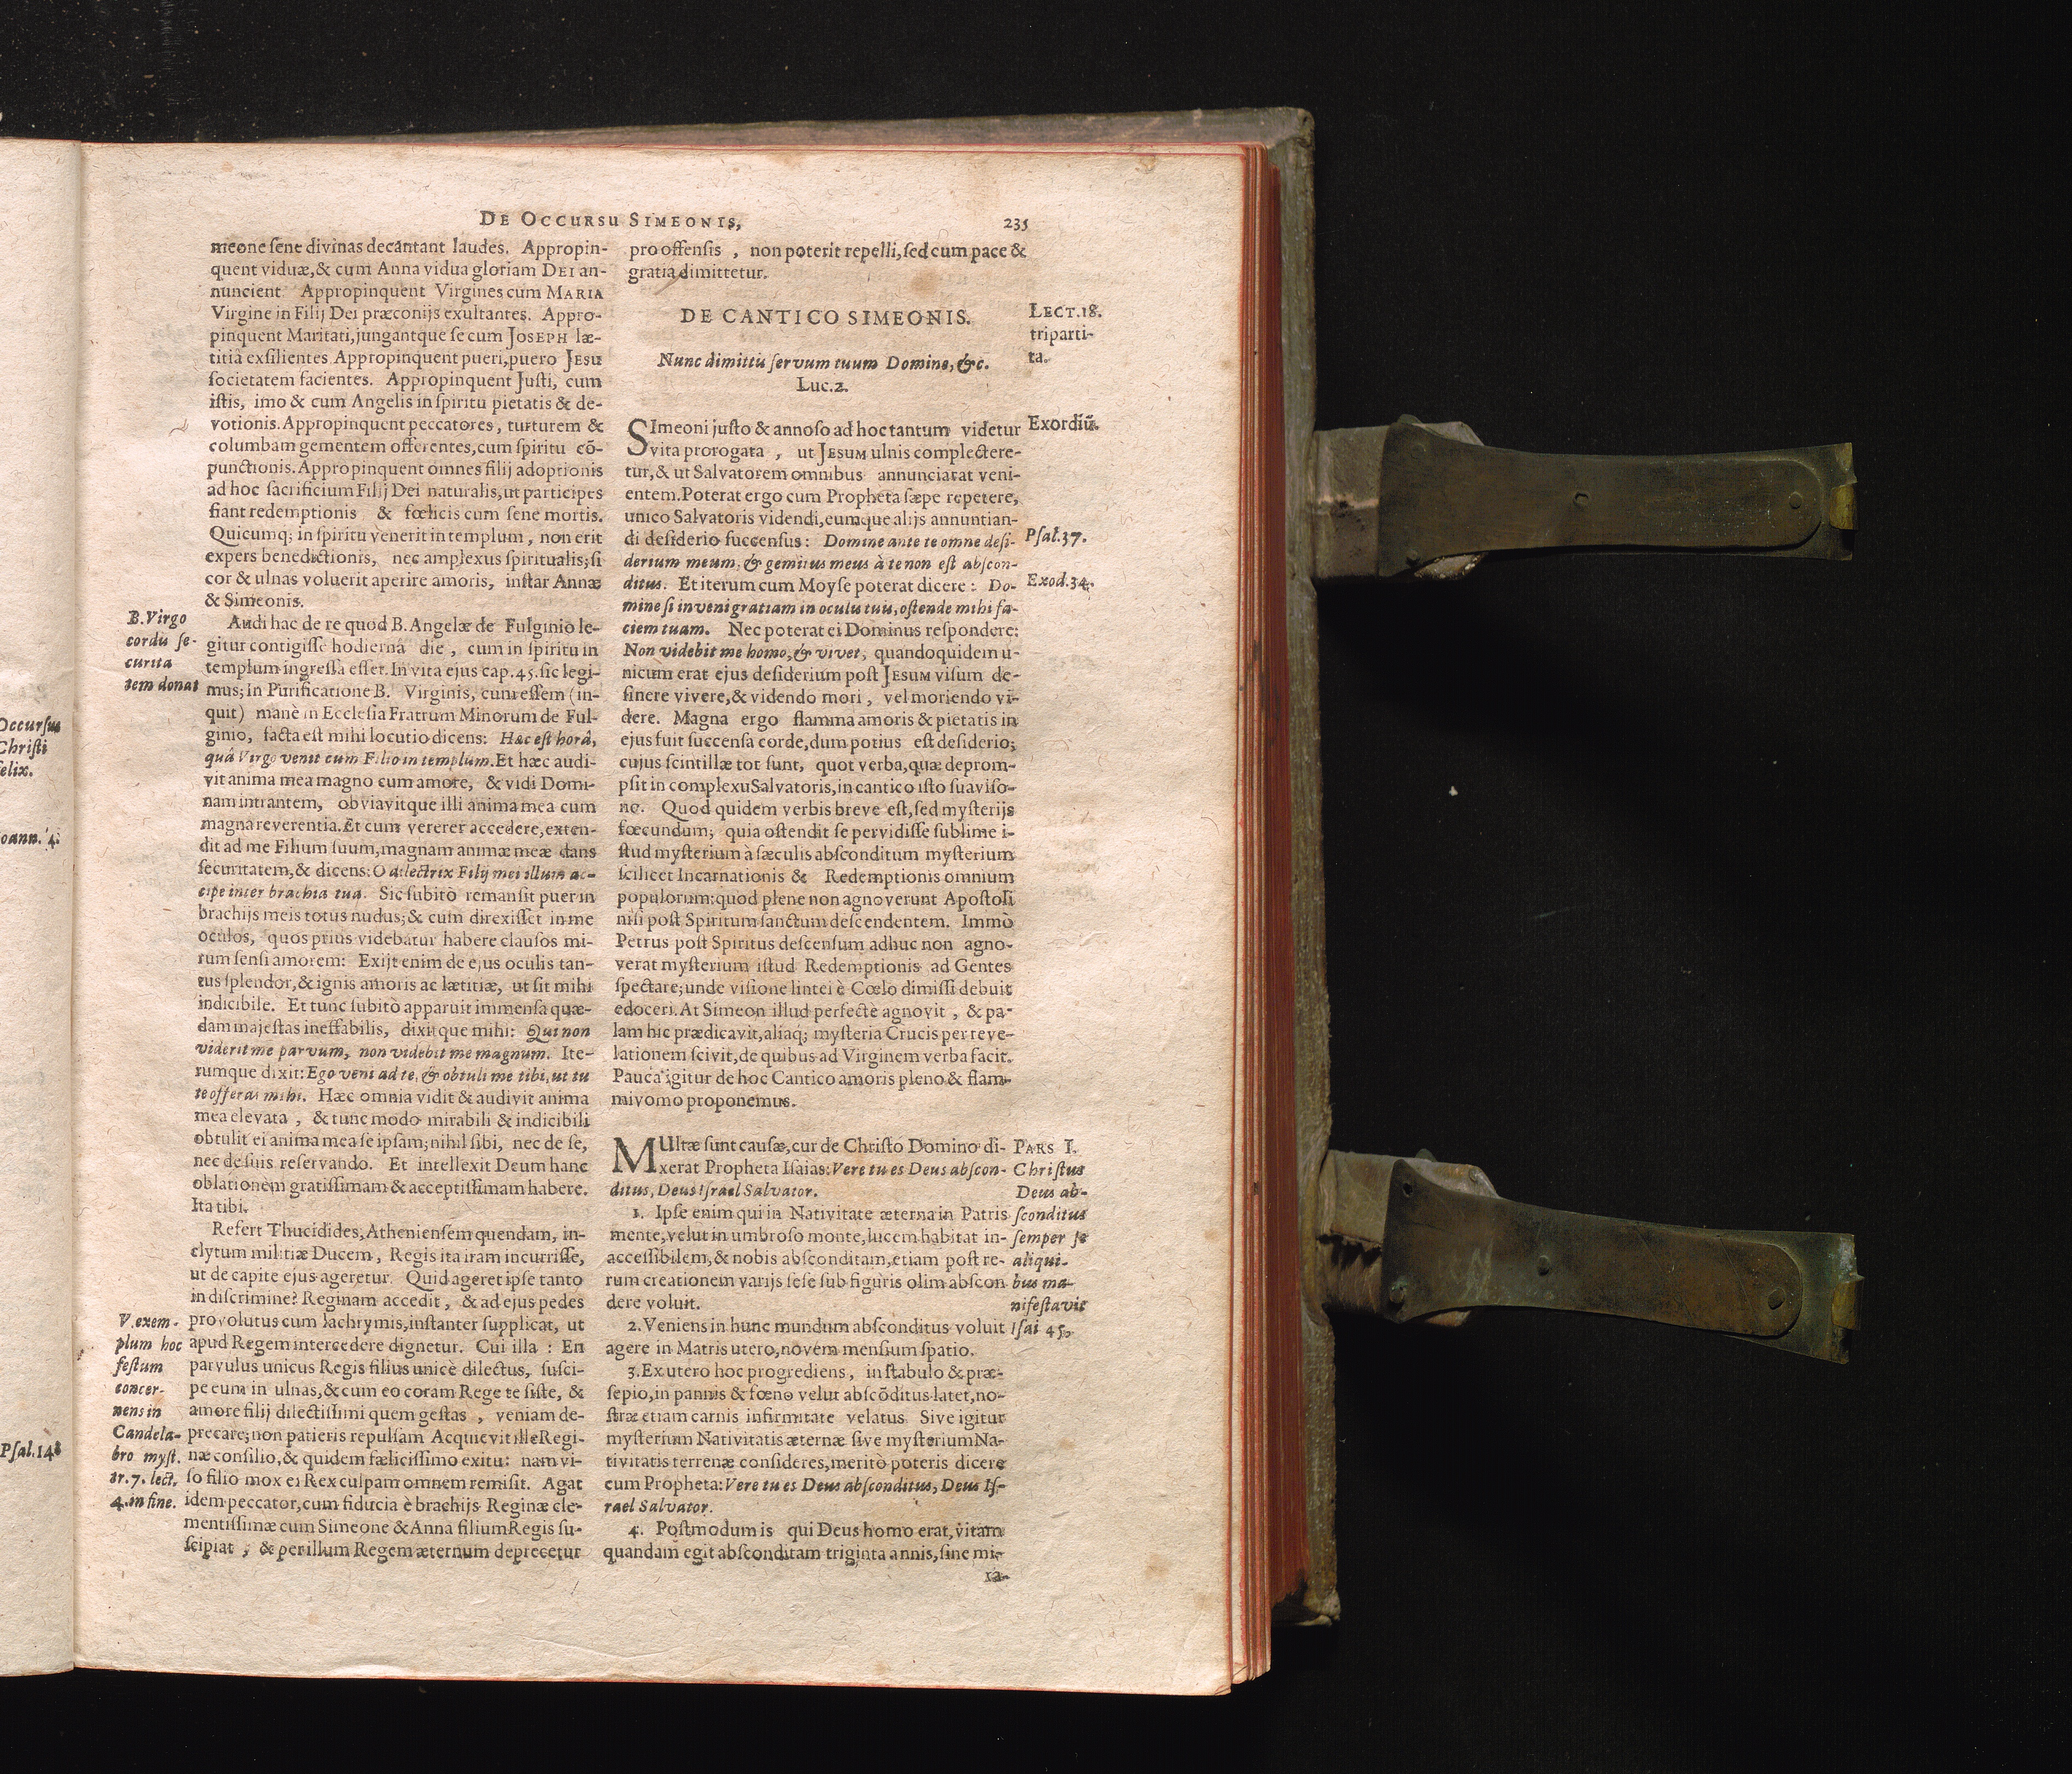 Occursus
Christi
felix.
Joann. 4.
Psal. 148
DE OCCURSU SIMEONIS,
235
meone sene divinas decantant laudes. Appropin-
quent viduæ, & cum Anna vidua gloriam DEI an-
nuncient. Appropinquent Virgines cum MARIA
Virgine in Filij Dei præconijs exultantes. Appro-
pinquent Maritati, jungantque se cum JOSEPH læ-
titiâ exsilientes. Appropinquent pueri, puero JESU
societatem facientes. Appropinquent Justi, cum
istis, imo & cum Angelis in spiritu pietatis & de-
votionis. Appropinquent peccatores, turturem &
columbam gementem offerentes, cum spiritu cō-
punctionis. Appropinquent omnes filij adoptionis
ad hoc sacrificium Filij Dei naturalis, ut participes
fiant redemptionis & fœlicis cum sene mortis.
Quicumq; in spiritu venerit in templum, non erit
expers benedictionis, nec amplexus spiritualis; si
cor & ulnas voluerit aperire amoris, instar Annæ
& Simeonis.
B. Virgo
cordis se-
curita
tem donat
Audi hac de re quod B. Angelæ de Fulginio le-
gitur contigisse hodiernâ die, cum in spiritu in
templum ingressa esset. In vita ejus cap. 45. sic legi-
mus; in Purificatione B. Virginis, cum essem (in-
quit) manè in Ecclesia Fratrum Minorum de Ful-
ginio, facta est mihi locutio dicens: Hæc est horâ,
quâ Virgo venit cum Filio in templum. Et hæc audi-
vit anima mea magno cum amore, & vidi Domi-
nam intrantem, obviavitque illi anima mea cum
magna reverentia. Et cum vererer accedere, exten-
dit ad me Filium suum, magnam animæ meæ dans
securitatem, & dicens: O dilectrix Filij mei illum ac-
cipe inter brachia tua. Sic subitò remansit puer in
brachijs meis totus nudus; & cum direxisset in me
oculos, quos prius videbatur habere clausos mi-
rum sensi amorem: Exijt enim de ejus oculis tan-
tus splendor, & ignis amoris ac lætitiæ, ut sit mihi
indicibile. Et tunc subitò apparuit immensa quæ-
dam majestas ineffabilis, dixitque mihi: Qui non
viderit me parvum, non videbit me magnum. Ite-
rumque dixit: Ego veni ad te, & obtuli me tibi, ut tu
te offeras mihi. Hæc omnia vidit & audivit anima
mea elevata, & tunc modo mirabili & indicibili
obtulit ei anima mea se ipsam; nihil sibi, nec de se,
nec de suis reservando. Et intellexit Deum hanc
oblationem gratissimam & acceptissimam habere.
Ita tibi.
Refert Thucidides, Atheniensem quendam, in-
clytum militiæ Ducem, Regis ita iram incurrisse,
ut de capite ejus ageretur. Quid ageret ipse tanto
in discrimine? Reginam accedit, & ad ejus pedes
V. exem-
plum hoc
festum
concer-
nens in
Candela-
bro myst.
tr. 7. lect.
4. in fine.
provolutus cum lachrymis, instanter supplicat, ut
apud Regem intercedere dignetur. Cui illa: En
parvulus unicus Regis filius unicè dilectus, susci-
pe eum in ulnas, & cum eo coram Rege te siste, &
amore filij dilectissimi quem gestas, veniam de-
precare; non patieris repulsam Acquievit ille Regi-
næ consilio, & quidem fælicissimo exitu: nam vi-
so filio mox ei Rex culpam omnem remisit. Agat
idem peccator, cum fiducia è brachijs Reginæ cle-
mentissimæ cum Simeone & Anna filium Regis su-
scipiat, & per illum Regem æternum deprecetur
pro offensis, non poterit repelli, sed cum pace &
gratia dimittetur.
DE CANTICO SIMEONIS.
LECT. 18.
triparti-
ta.
Nunc dimittis servum tuum Domine, &c.
Luc. 2.
Exordiū.
SImeoni justo & annoso ad hoc tantum videtur
vita prorogata, ut JESUM ulnis complectere-
tur, & ut Salvatorem omnibus annunciarat veni-
entem. Poterat ergo cum Propheta sæpe repetere,
unico Salvatoris videndi, eumque alijs annuntian-
di desiderio succensus: Domine ante te omne desi-
Psal. 37.
derium meum, & gemitus meus à te non est abscon-
ditus. Et iterum cum Moyse poterat dicere: Do-
Exod. 34.
mine si inveni gratiam in oculis tuis, ostende mihi fa-
ciem tuam. Nec poterat ei Dominus respondere:
Non videbit me homo, & vivet, quandoquidem u-
nicum erat ejus desiderium post JESUM visum de-
sinere vivere, & videndo mori, vel moriendo vi-
dere. Magna ergo flamma amoris & pietatis in
ejus fuit succensa corde, dum potius est desiderio;
cujus scintillæ tot sunt, quot verba, quæ deprom-
psit in complexu Salvatoris, in cantico isto suaviso-
no. Quod quidem verbis breve est, sed mysterijs
fœcundum; quia ostendit se pervidisse sublime i-
stud mysterium à sæculis absconditum mysterium
scilicet Incarnationis & Redemptionis omnium
populorum: quod plene non agnoverunt Apostoli
nisi post Spiritum sanctum descendentem. Immò
Petrus post Spiritus descensum adhuc non agno-
verat mysterium istud Redemptionis ad Gentes
spectare; unde visione lintei è Cœlo dimissi debuit
edoceri. At Simeon illud perfectè agnovit, & pa-
lam hic prædicavit, aliaq; mysteria Crucis per reve-
lationem scivit, de quibus ad Virginem verba facit.
Pauca igitur de hoc Cantico amoris pleno & flam-
mivomo proponemus.
MUltæ sunt causæ, cur de Christo Domino di-
xerat Propheta Isaias: Vere tu es Deus abscon-
ditus, Deus Israel Salvator.
PARS I.
Christus
Deus ab-
sconditus
semper se
aliqui-
bus ma-
nifestavit
Isai 45.
1. Ipse enim qui in Nativitate æterna in Patris
mente, velut in umbroso monte, lucem habitat in-
accessibilem, & nobis absconditam, etiam post re-
rum creationem varijs sese sub figuris olim abscon
dere voluit.
2. Veniens in hunc mundum absconditus voluit
agere in Matris utero, novem mensium spatio.
3. Ex utero hoc progrediens, in stabulo & præ-
sepio, in pannis & fœno velut abscōditus latet, no-
stræ etiam carnis infirmitate velatus. Sive igitur
mysterium Nativitatis æternæ sive mysterium Na-
tivitatis terrenæ consideres, meritò poteris dicere
cum Propheta: Vere tu es Deus absconditus, Deus Is-
rael Salvator.
4. Postmodum is qui Deus homo erat, vitam
quandam egit absconditam triginta annis, sine mi-
ra-